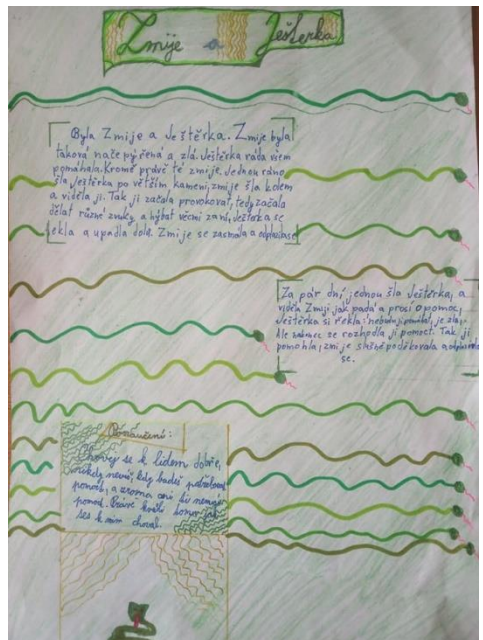 Zmije a Ještěrka
Byla Zmije a Ještěrka. Zmije byla
taková načepýřená a zlá. Ještěrka ráda všem
pomáhala. Kromě právě té zmije. Jednou ráno
šla Ještěrka po větším kameni, zmije šla kolem
a viděla ji. Tak ji začala provokovat, tedy začala
dělat různé zvuky, a hýbat věcmi za ní, Ještěrka se
lekla a upadla dolů. Zmije se zasmála a odplazila se
Za pár dní jednou šla Ještěrka, a
viděla Zmiji jak padá a prosí o pomoc,
Ještěrka si řekla: nebudu jí pomáhat, je zlá,
Ale nakonec se rozhodla jí pomoct. Tak jí
pomohla, zmije slušně poděkovala a odplazila
se.
Ponaučení:
Chovej se k lidem dobře,
nikdy nevíš, kdy budeš potřebovat
pomoc, a zrovna oni ti nemusí
pomoct. Právě kvůli tomu jak
ses k nim choval.